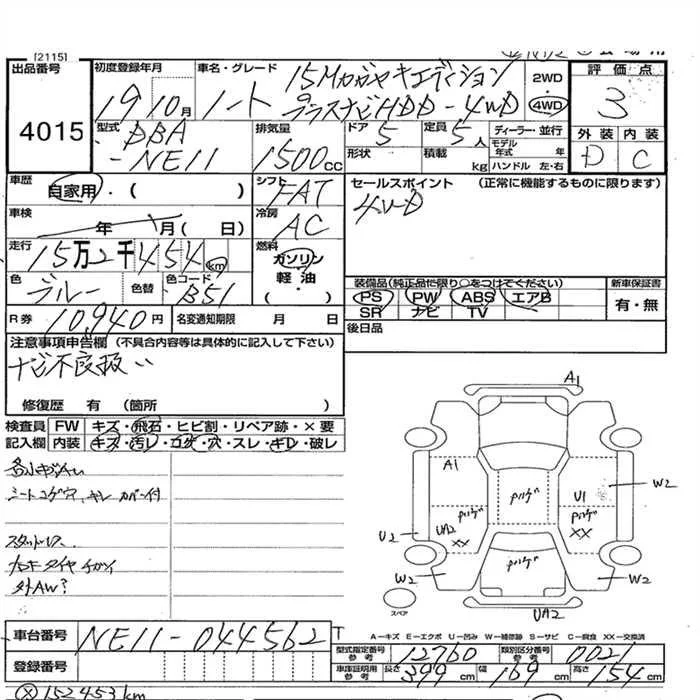 [2115]
出品番号
4015
初度登録年月
19 10月
車名・グレード
ノート
15Mカガヤキエディション
プラスナビHDD-4WD
2WD
・
4WD
評価点
3
外装 内装
D C
型式
DBA
-NE11
排気量
1500cc
ドア 5
形状
定員 5人
積載 kg
ディーラー・並行
モデル年式 年
ハンドル 左・右
車歴
自家用・( )
シフト
FAT
セールスポイント (正常に機能するものに限ります)
4WD
車検
年 月( 日)
冷房
AC
走行
15万2千454km
燃料
ガソリン
軽油
( ・ )
色
ブルー
色替
色コード
B51
装備品(純正品に限り○をつけてください)
PS PW ABS エアB
SR ナビ TV
新車保証書
有・無
R券 10,940円
名変通知期限 月 日
後日品
注意事項申告欄 (不具合内容等は具体的に記入して下さい)
ナビ不良扱い
修復歴 有 (箇所 )
検査員 FW キズ・飛石・ヒビ割・リペア跡・×要
記入欄 内装 キズ・汚レ・コゲ・穴・スレ・キレ・破レ
各小キズAU
シートコゲ穴、キレ カバー付
スタットレス
ナット タイヤ チガイ
外AW?
A1
A1
U1
W2
UA2
XX
XX
U2
W2
W2
UA2
スペア
A-キズ E-エクボ U-凹み W-補修跡 S-サビ C-腐食 XX-交換済
車台番号
NE11-044562
登録番号
型式指定番号
参考
12760
類別区分番号
参考
0021
車庫証明用
参考
長さ 399cm
幅 169cm
高さ 154cm
152453km